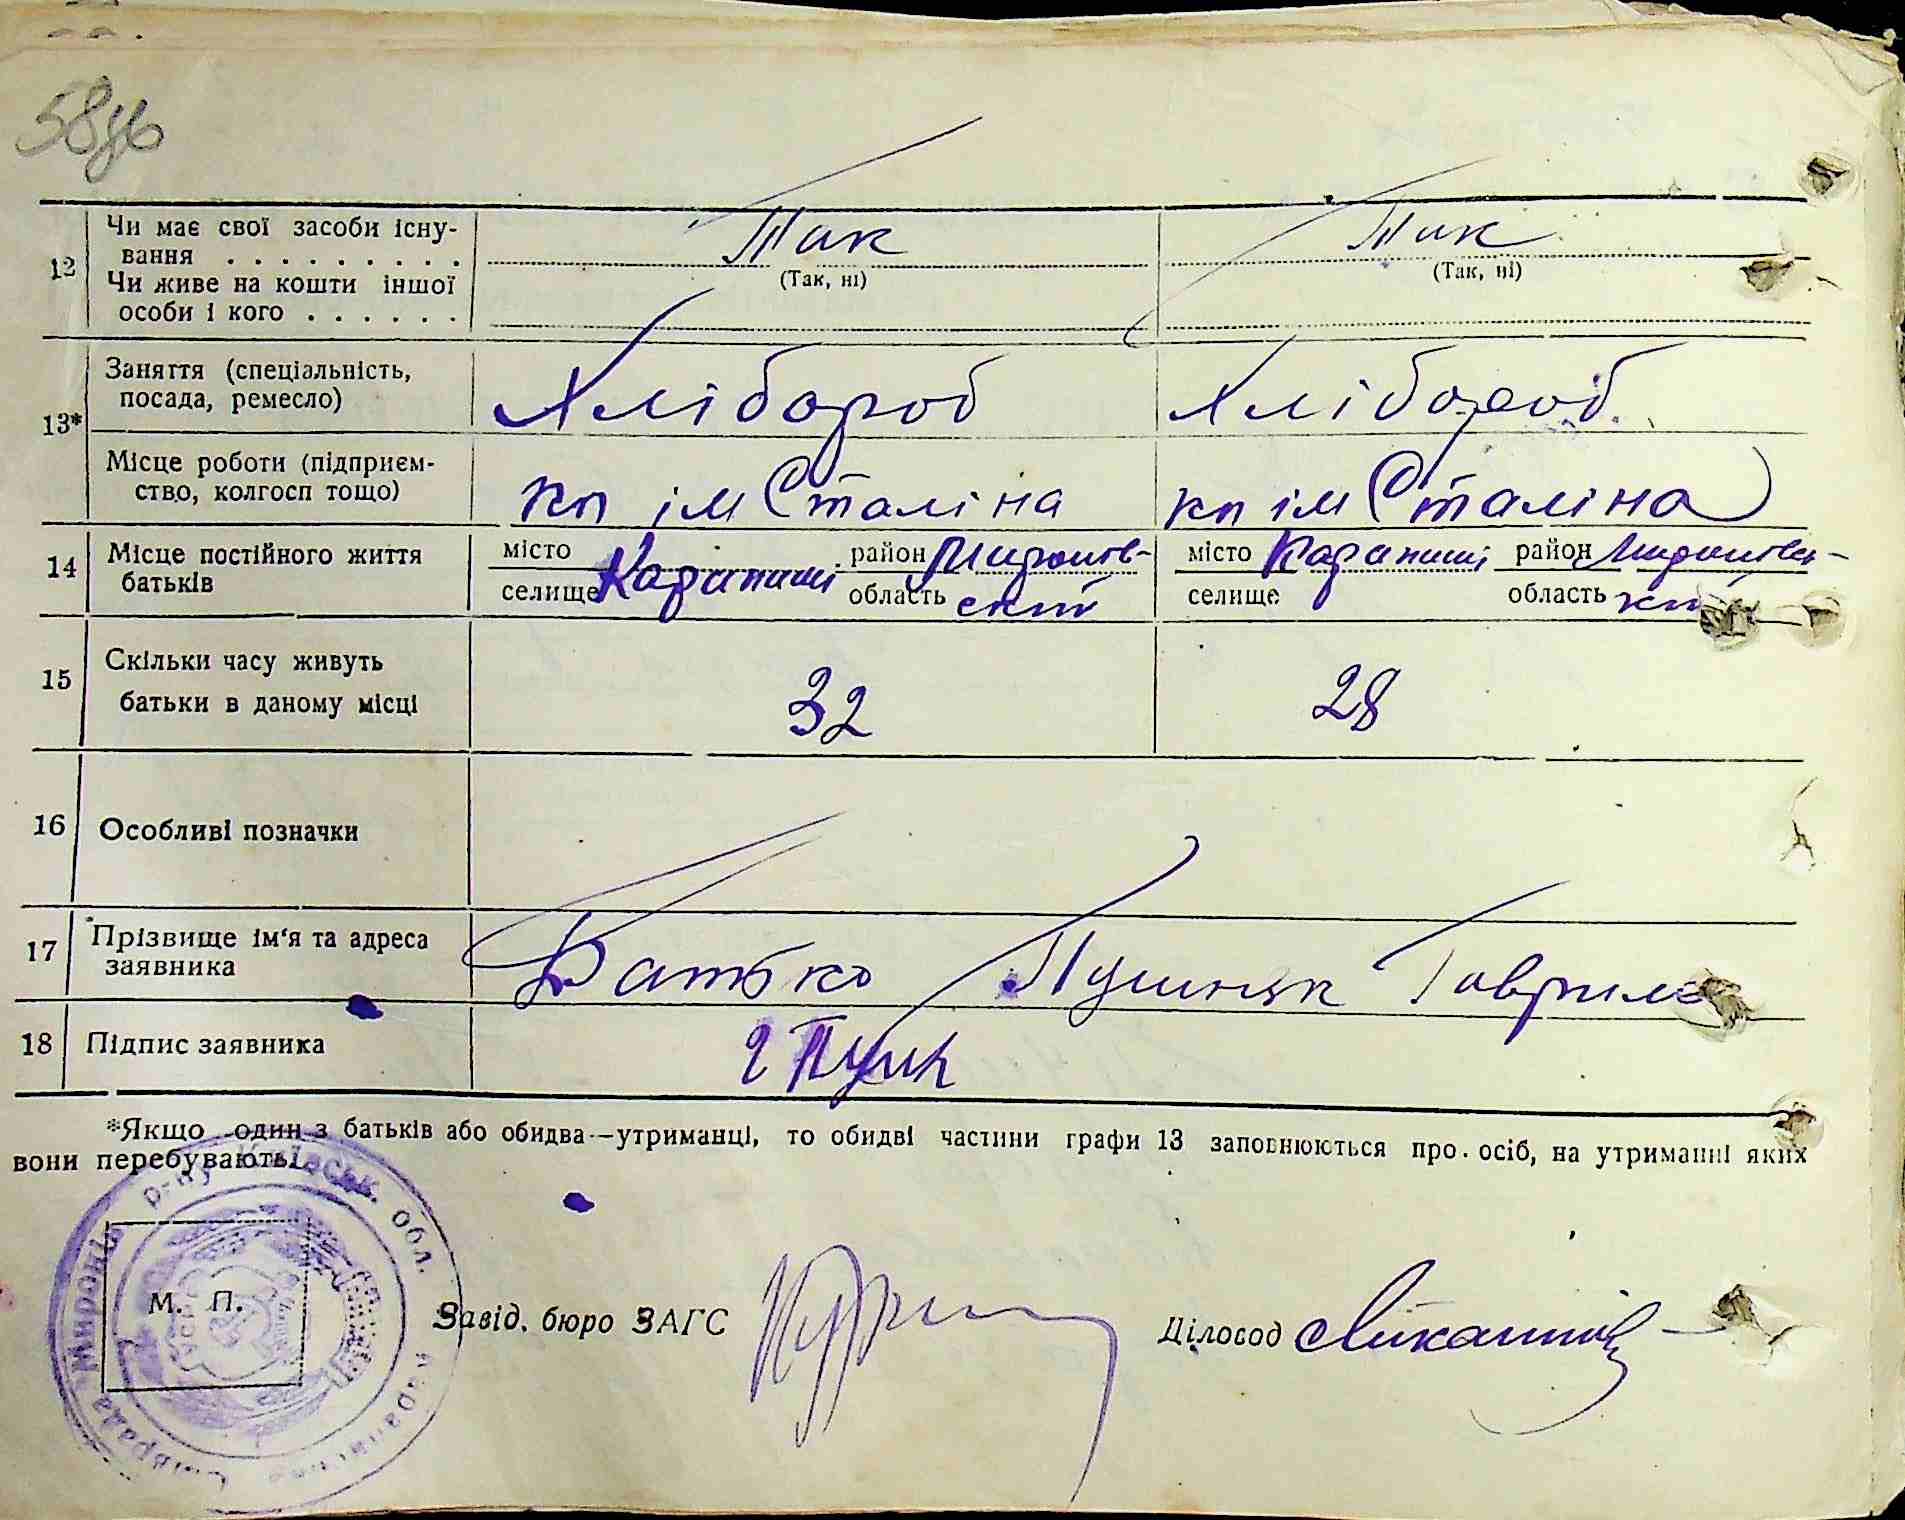 58зв
12 Чи має свої засоби існу-
вання . . . . . . . . . Так Так
(Так, ні) (Так, ні)
Чи живе на кошти іншої
особи і кого . . . . . .
13* Заняття (спеціальність,
посада, ремесло) Хлібороб Хлібороб
Місце роботи (підприєм-
ство, колгосп тощо) кп ім Сталіна кп ім Сталіна
14 Місце постійного життя
батьків
місто Карапиши район Миронів- місто Карапиши район Миронівсь-
селище область ский селище область кий
15 Скільки часу живуть
батьки в даному місці 32 28
16 Особливі позначки
17 Прізвище ім'я та адреса
заявника Батько Гаврило
18 Підпис заявника Г Пушк
*Якщо один з батьків або обидва—утриманці, то обидві частини графи 13 заповнюються про осіб, на утриманні яких
вони перебувають.
Миронів р-ну Київськ. обл.
М. П.
Завід. бюро ЗАГС Діловод